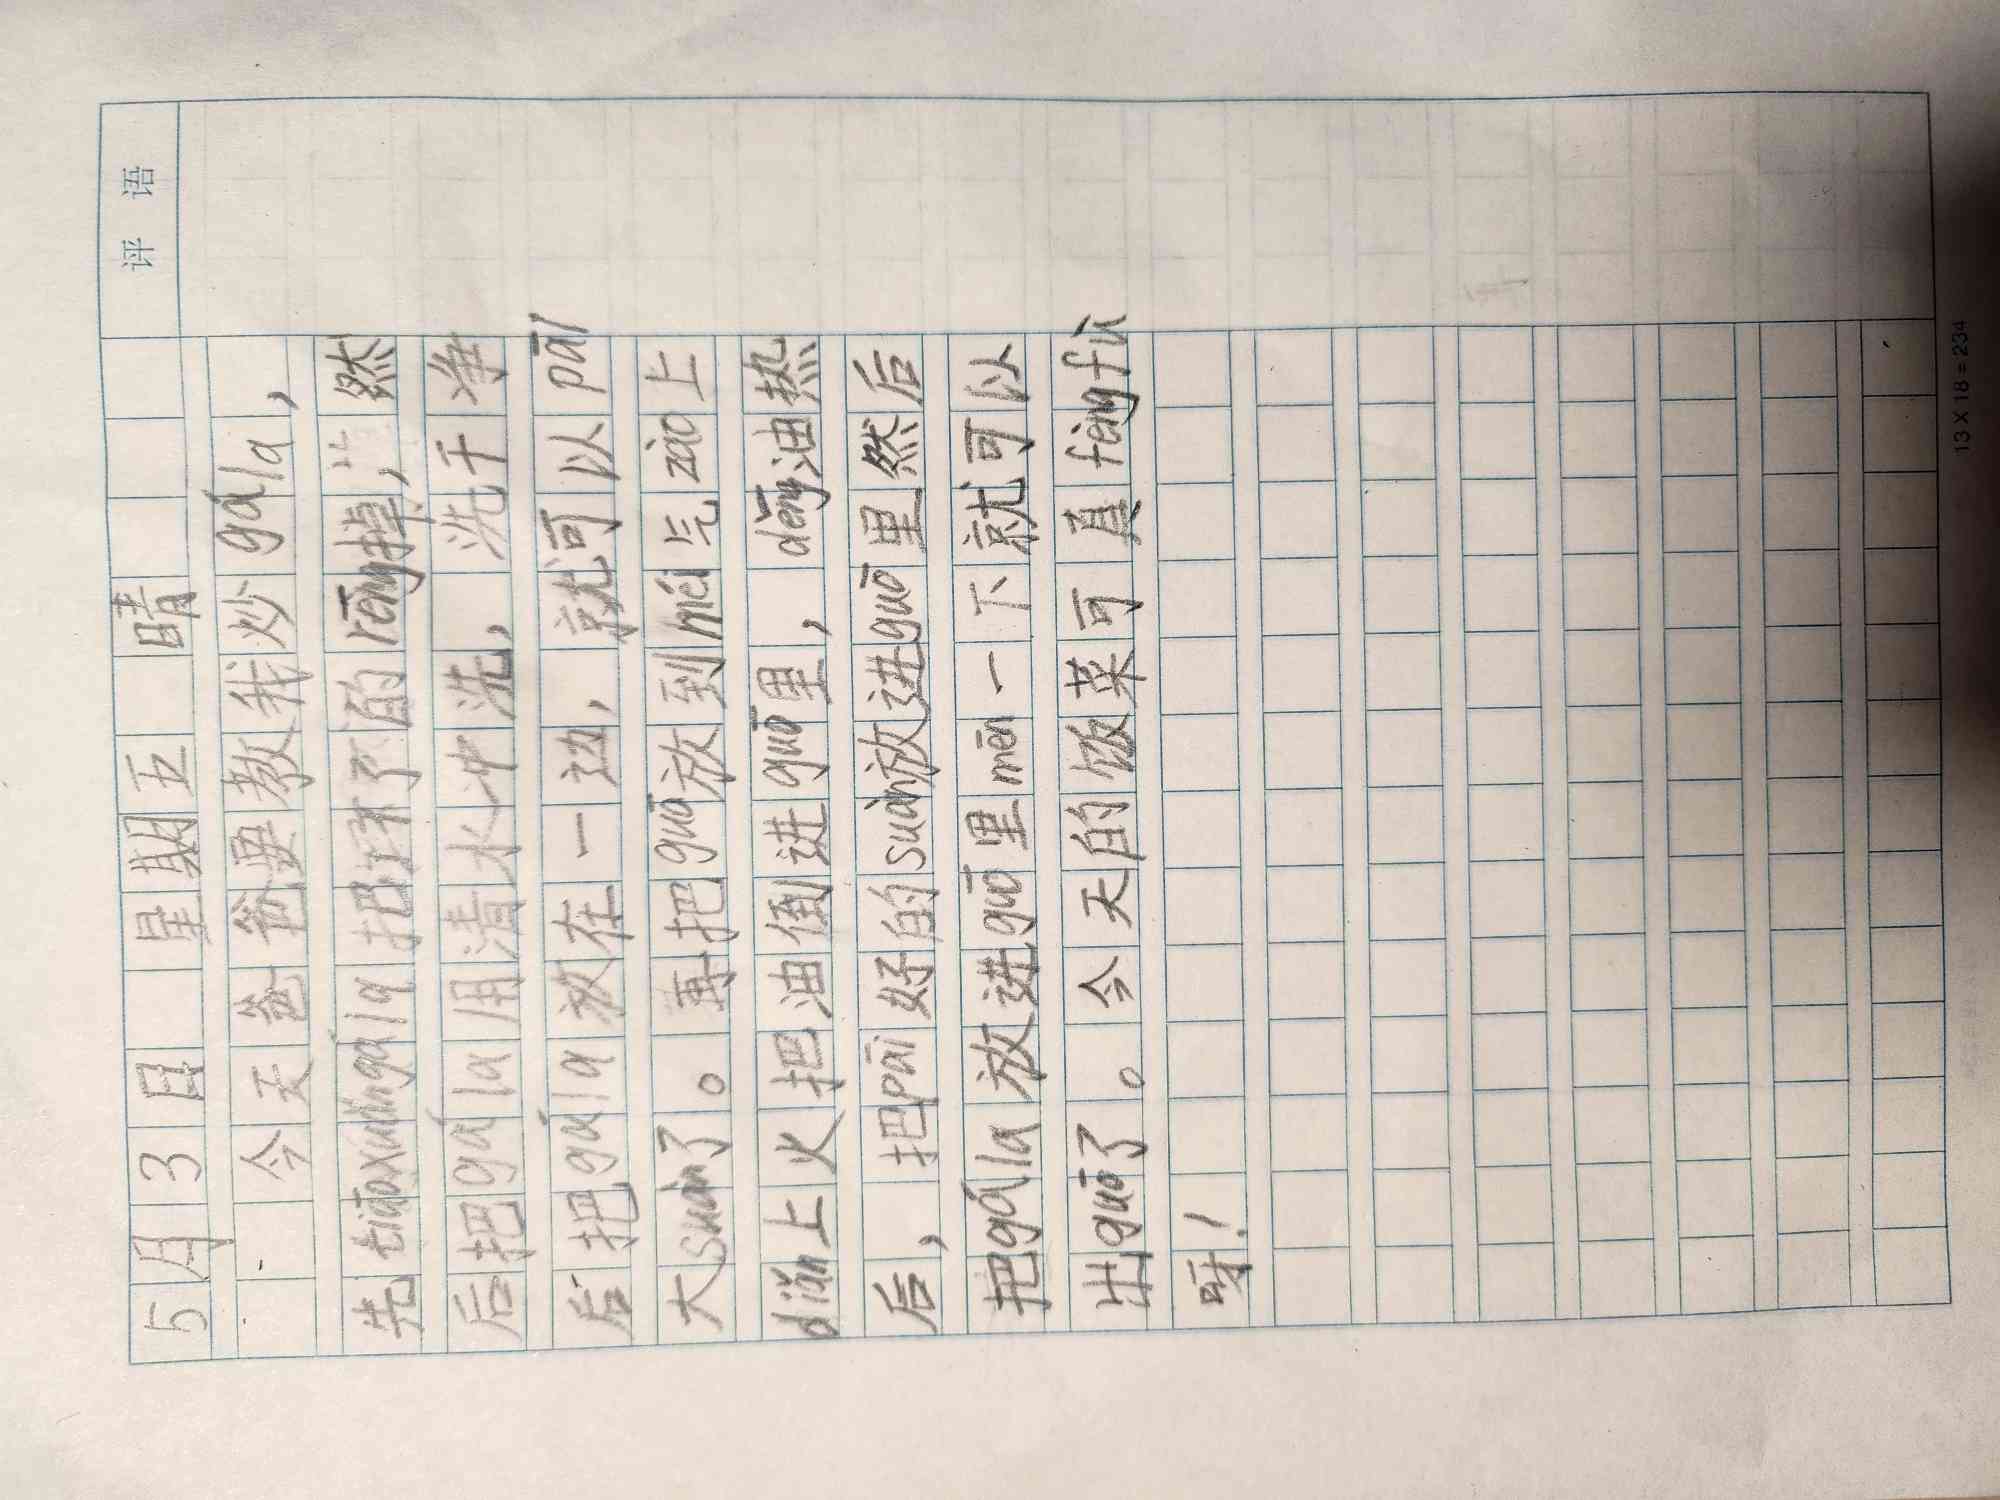 5月3日 星期五 晴
今天爸爸要教我炒gála,
先tiāoxuǎngála把坏了的rēng掉,然
后把gála用清水冲洗,洗干净
后把gála放在一边,就可以pāi
大suàn了。再把guō放到méi气zào上
diǎn上火把油倒进guō里,děng油热
后,把pāi好的suàn放进guō里然后
把gála放进guō里mēn一下就可以
出guō了。今天的饭菜可真fēngfù
呀!
评语
13×18=234